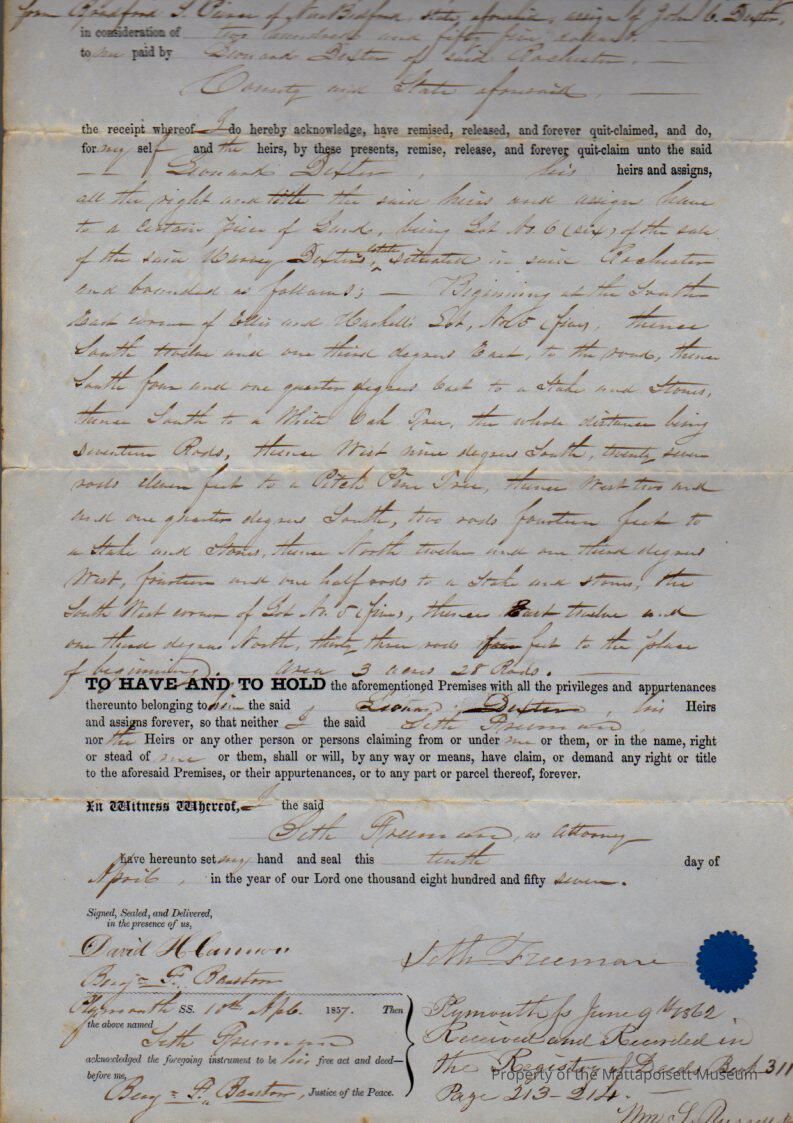 from Bradford S. Pierce of New Bedford, state, aforesaid, assign of John C. Dexter,
in consideration of two hundred and fifty five dollars,
to me paid by Leonard Dexter of said Rochester,
County and State aforesaid,
the receipt whereof I do hereby acknowledge, have remised, released, and forever quit-claimed, and do,
for my self and the heirs, by these presents, remise, release, and forever quit-claim unto the said
Leonard Dexter his heirs and assigns,
all the right and title the said heirs and assign have
to a certain piece of Land, being Lot No. 6 (six) of the sale
of the said Harvey Dexter's estate, situated in said Rochester
and bounded as follows; — Beginning at the South
East corner of Ellis and Haskell's Lot, No. 5 (five), thence
South twelve and one third degrees East, to the road, thence
South four and one quarter degrees East to a Stake and Stones,
thence South to a White Oak Tree, the whole distance being
Seventeen Rods, thence West nine degrees South, twenty seven
rods eleven feet to a Pitch Pine Tree, thence West two and
and one quarter degrees South, two rods fourteen feet to
a Stake and Stones, thence North twelve and one third degrees
West, fourteen and one half rods to a Stake and stones, the
South West corner of Lot No. 5 (five), thence East twelve and
one third degrees North, thirty three rods four feet to the place
of beginning. Area 3 acres 28 Rods.
TO HAVE AND TO HOLD the aforementioned Premises with all the privileges and appurtenances
thereunto belonging to him the said Leonard Dexter, his Heirs
and assigns forever, so that neither I the said Seth Freeman
nor the Heirs or any other person or persons claiming from or under me or them, or in the name, right
or stead of me or them, shall or will, by any way or means, have claim, or demand any right or title
to the aforesaid Premises, or their appurtenances, or to any part or parcel thereof, forever.
In Witness Whereof, I the said
Seth Freeman, as Attorney
have hereunto set my hand and seal this tenth day of
April, in the year of our Lord one thousand eight hundred and fifty seven.
Signed, Sealed, and Delivered,
in the presence of us,
David H Cannon
Benj= F. Barstow
Seth Freeman
Plymouth SS. 10th Apl. 1857. Then
the above named
Seth Freeman
acknowledged the foregoing instrument to be his free act and deed—
before me,
Benj= F. Barstow, Justice of the Peace.
Plymouth ss June 9th 1862
Received and Recorded in
the Register of Deeds Book 311
Page 213-214.
Wm. S. Russell
Property of the Mattapoisett Museum